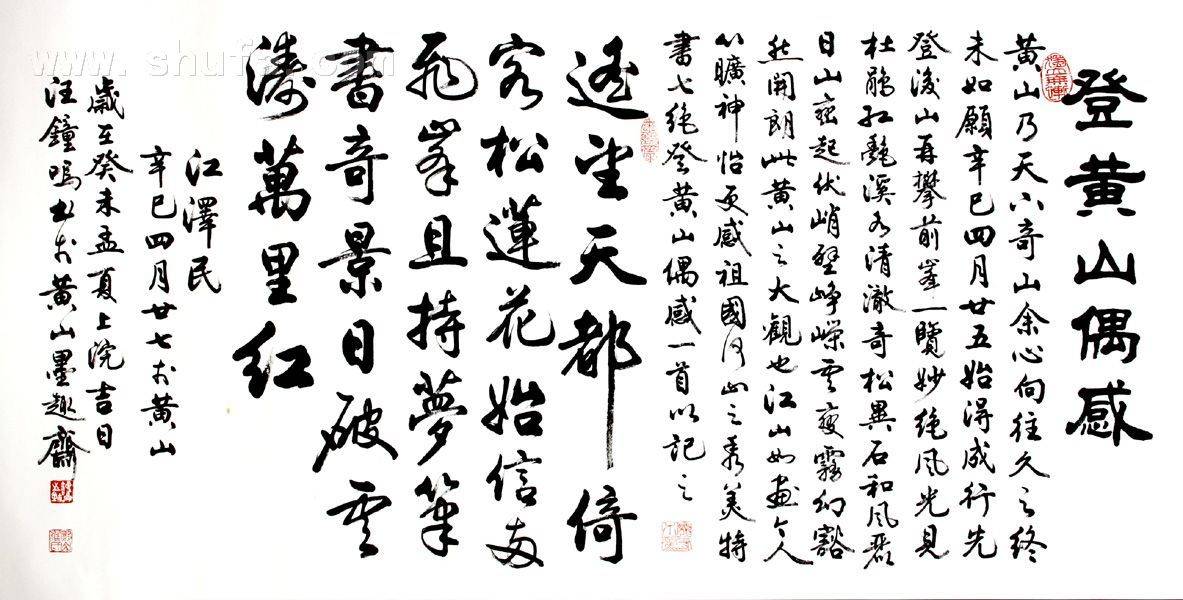 登黄山偶感
黄山乃天下奇山余心向往久之终
未如願辛巳四月廿五始得成行先
登後山再攀前峯一覽妙绝风光見
杜鹃红艷溪水清澈奇松異石和风麗
日山峦起伏峭壁峥嵘雲變霧幻豁
然開朗此黄山之大觀也江山如画令人
心曠神怡更感祖國河山之秀美特
書七绝登黄山偶感一首以記之
遥望天都倚
客松蓮花始信兩
飛峯且持夢筆
書奇景日破雲
濤萬里红
江澤民
辛巳四月廿七於黄山
歲在癸未孟夏上浣吉日
汪鐘鸣書於黄山墨趣齋
www.shufa.com